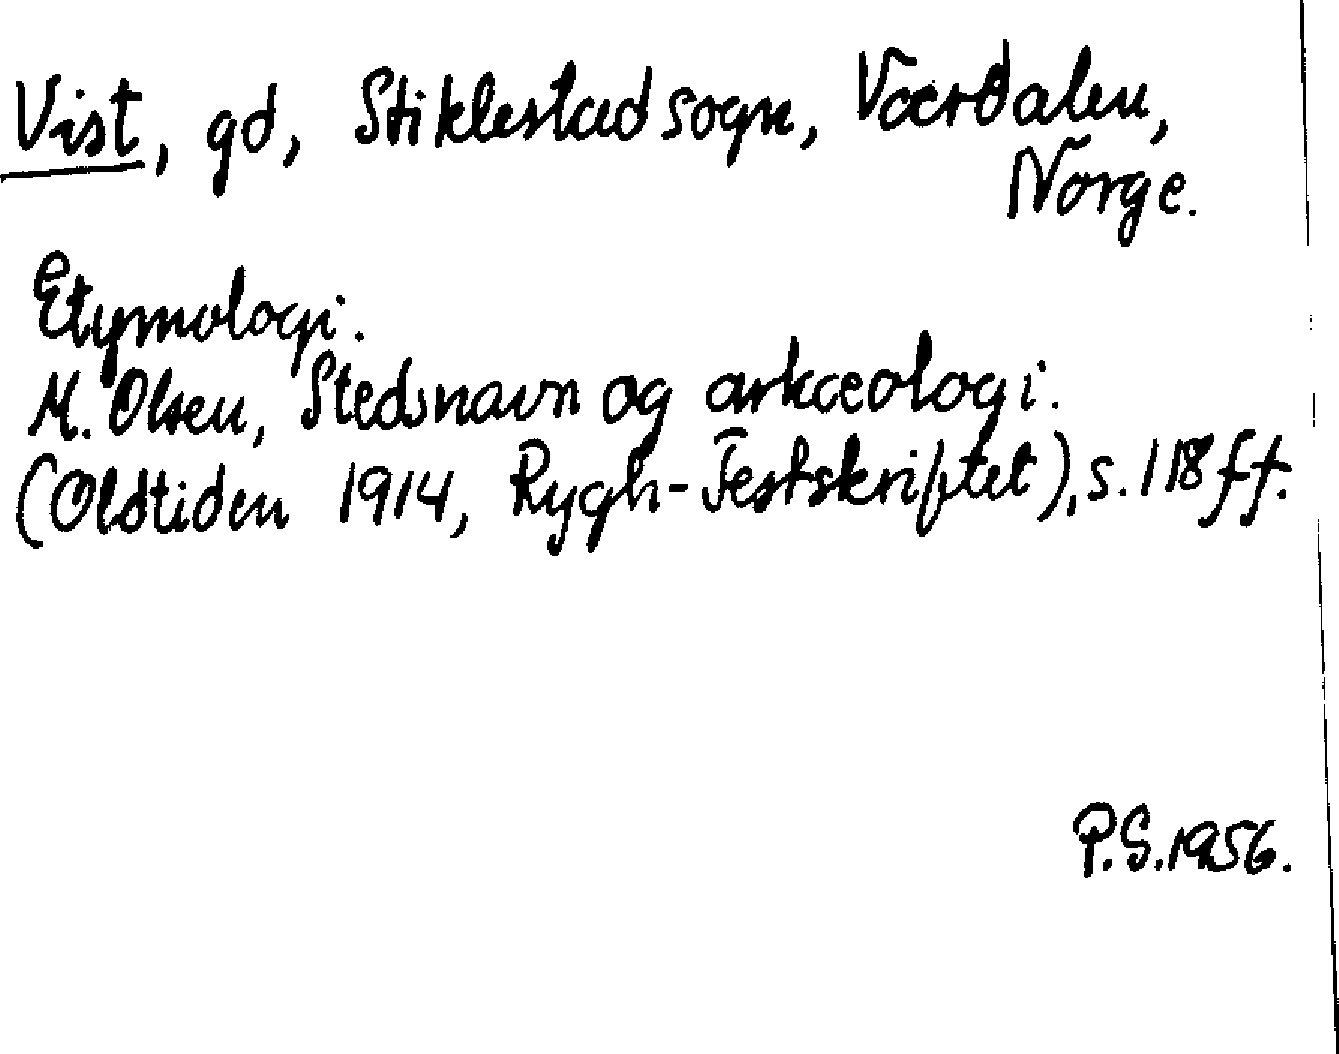 Vist, gd, Stiklestad sogn, Værdalen,
Norge.
Etymologi.
M. Olsen, Stedsnavn og arkæologi.
(Oldtiden 1914, Rygh-Festskriftet), s. 118 ff.
P.S. 1956.